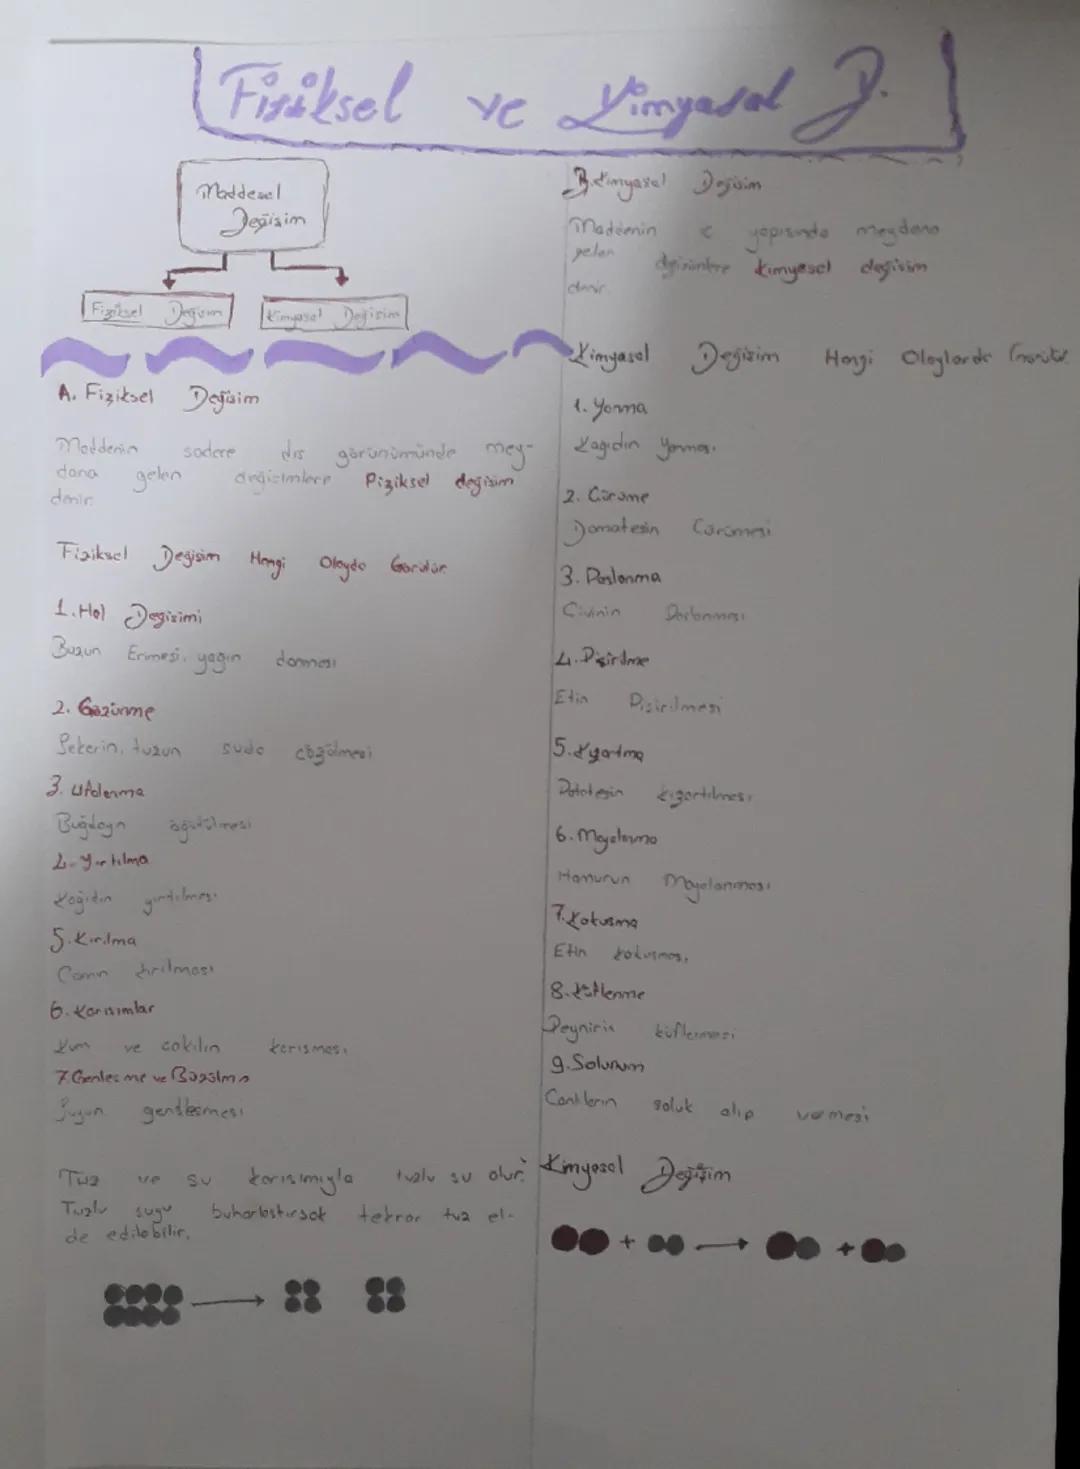 Fiziksel ve Kimyasal D.
Maddesel
Değişim
Fiziksel Değişim
Kimyasal Değişim
A. Fiziksel Değişim
Maddenin sadece dış görünümünde mey-
dana gelen değişimlere Fiziksel değişim
denir.
Fiziksel Değişim Hangi Olayda Görülür
1. Hal Değişimi
Buzun Erimesi, yağın donması
2. Çözünme
Şekerin, tuzun suda çözülmesi
3. Ufalanma
Buğdayın öğütülmesi
4. Yırtılma
Kağıdın yırtılması
5. Kırılma
Camın kırılması
6. Karışımlar
Kum ve çakılın karışması
7. Genleşme ve Büzülme
Suyun genleşmesi
Tuz ve su karışımıyla tuzlu su olur.
Tuzlu suyu buharlaştırsak tekrar tuz el-
de edilebilir.
B. Kimyasal Değişim
Maddenin iç yapısında meydana
gelen değişimlere kimyasal değişim
denir.
Kimyasal Değişim Hangi Olaylarda Görülür
1. Yanma
Kağıdın Yanması
2. Çürüme
Domatesin Çürümesi
3. Paslanma
Çivinin Paslanması
4. Pişirilme
Etin Pişirilmesi
5. Kızartma
Patatesin kızartılması
6. Mayalanma
Hamurun Mayalanması
7. Kokuşma
Etin kokuşması
8. Küflenme
Peynirin küflenmesi
9. Solunum
Canlıların soluk alıp vermesi
Kimyasal Değişim